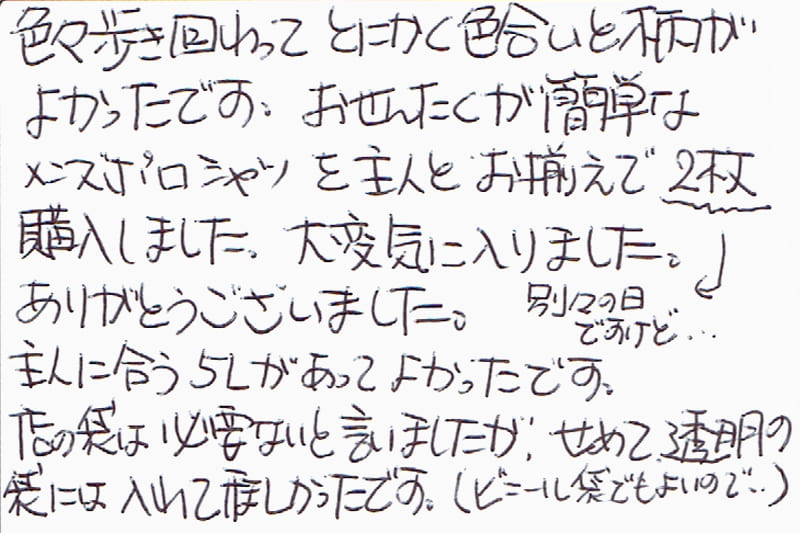 色々歩き回わって とにかく色合いと柄が
よかったです。おせんたくが簡単な
メンズポロシャツを主人とお揃えで2枚
購入しました。大変気に入りました。
ありがとうございました。
別々の日
ですけど…
主人に合う5Lがあってよかったです。
店の袋は必要ないと言いましたが、せめて透明の
袋には入れて欲しかったです。(ビニール袋でもよいので‥)